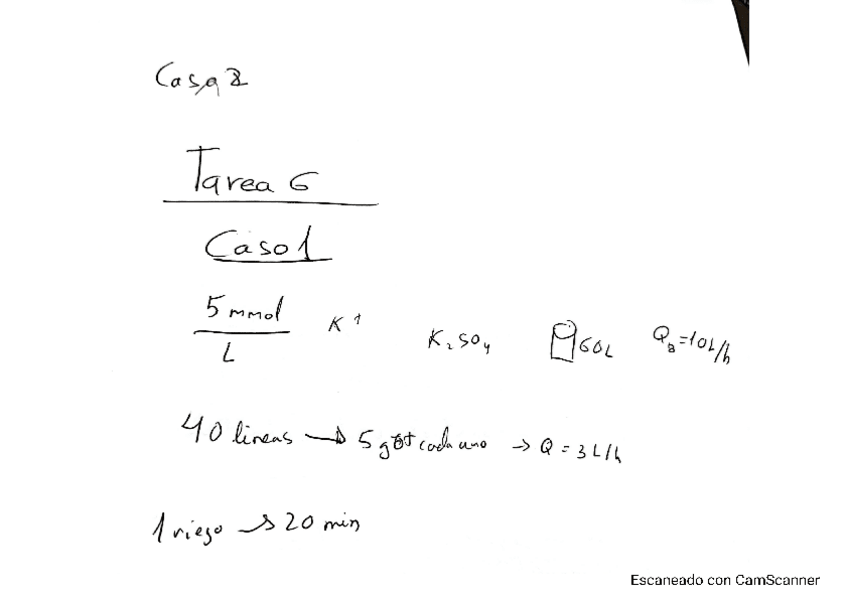 Casa 2
Tarea 6
Caso 1
5 mmol
L
K⁺ K₂SO₄ 60L Q_B=10L/h
40 lineas → 5 got cada uno → Q = 3 L/h
1 riego → 20 min
Escaneado con CamScanner